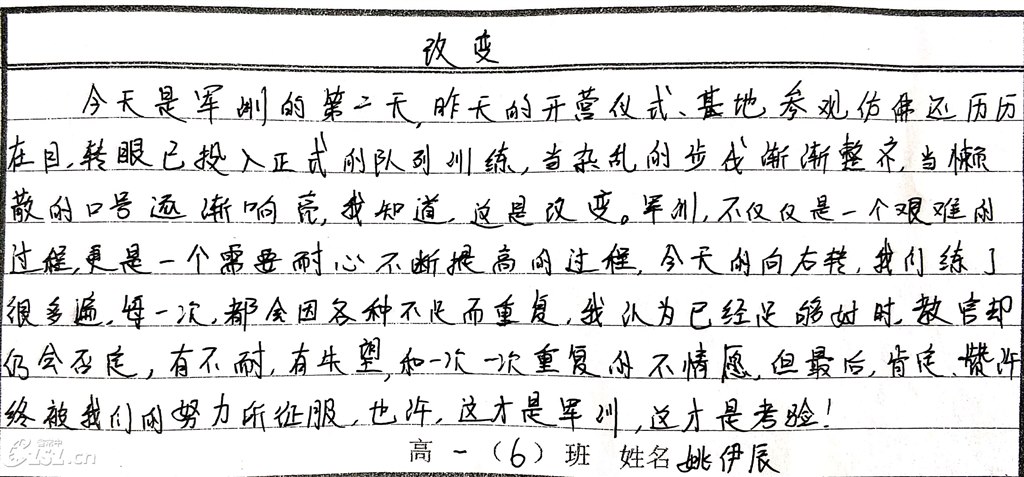 改变
今天是军训的第二天,昨天的开营仪式、基地参观仿佛还历历
在目,转眼已投入正式的队列训练,当杂乱的步伐渐渐整齐,当懒
散的口号逐渐响亮,我知道,这是改变。军训,不仅仅是一个艰难的
过程,更是一个需要耐心不断提高的过程,今天的向右转,我们练了
很多遍,每一次,都会因各种不足而重复,我认为已经足够好时,教官却
仍会否定,有不耐,有失望,和一次一次重复的不情愿,但最后,肯定、赞许
终被我们的努力所征服,也许,这才是军训,这才是考验!
高一(6)班 姓名 姚伊辰
1s1.cn